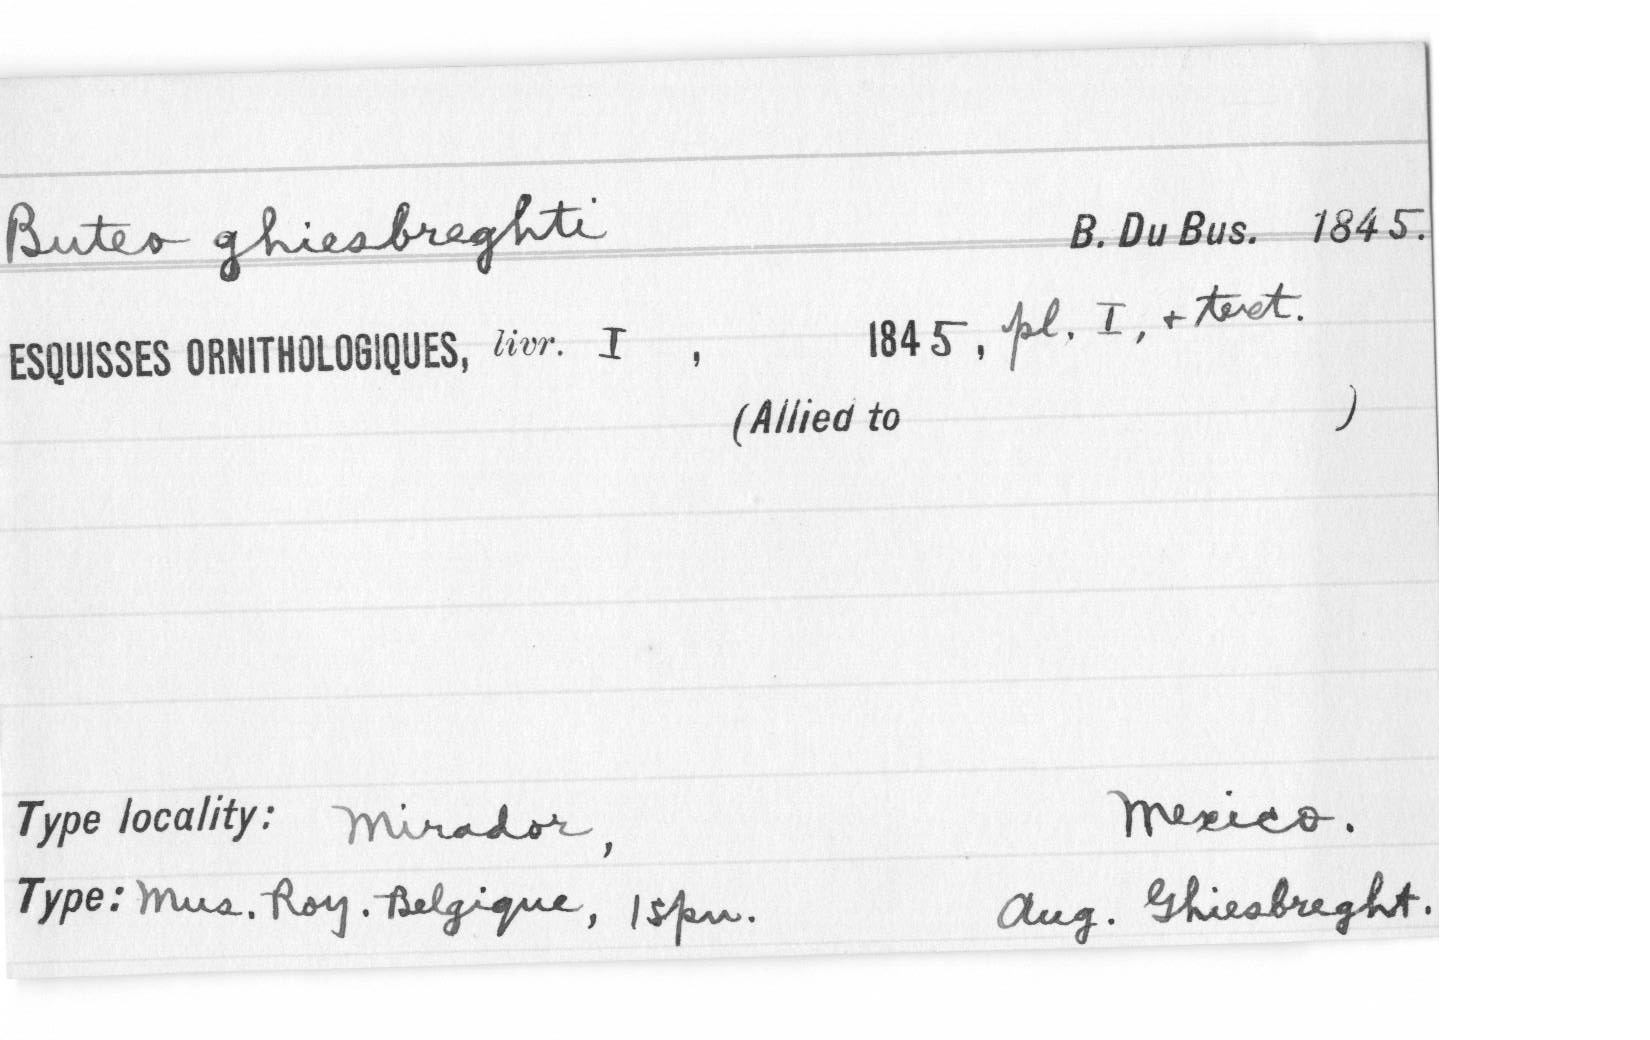 Buteo ghiesbreghti B. Du Bus. 1845.
ESQUISSES ORNITHOLOGIQUES, livr. I , 1845, pl. I, + text.
(Allied to )
Type locality: Mirador, Mexico.
Type: Mus. Roy. Belgique, 1 spn. Aug. Ghiesbreght.